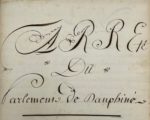 ARREt
Du
Parlement De Dauphiné